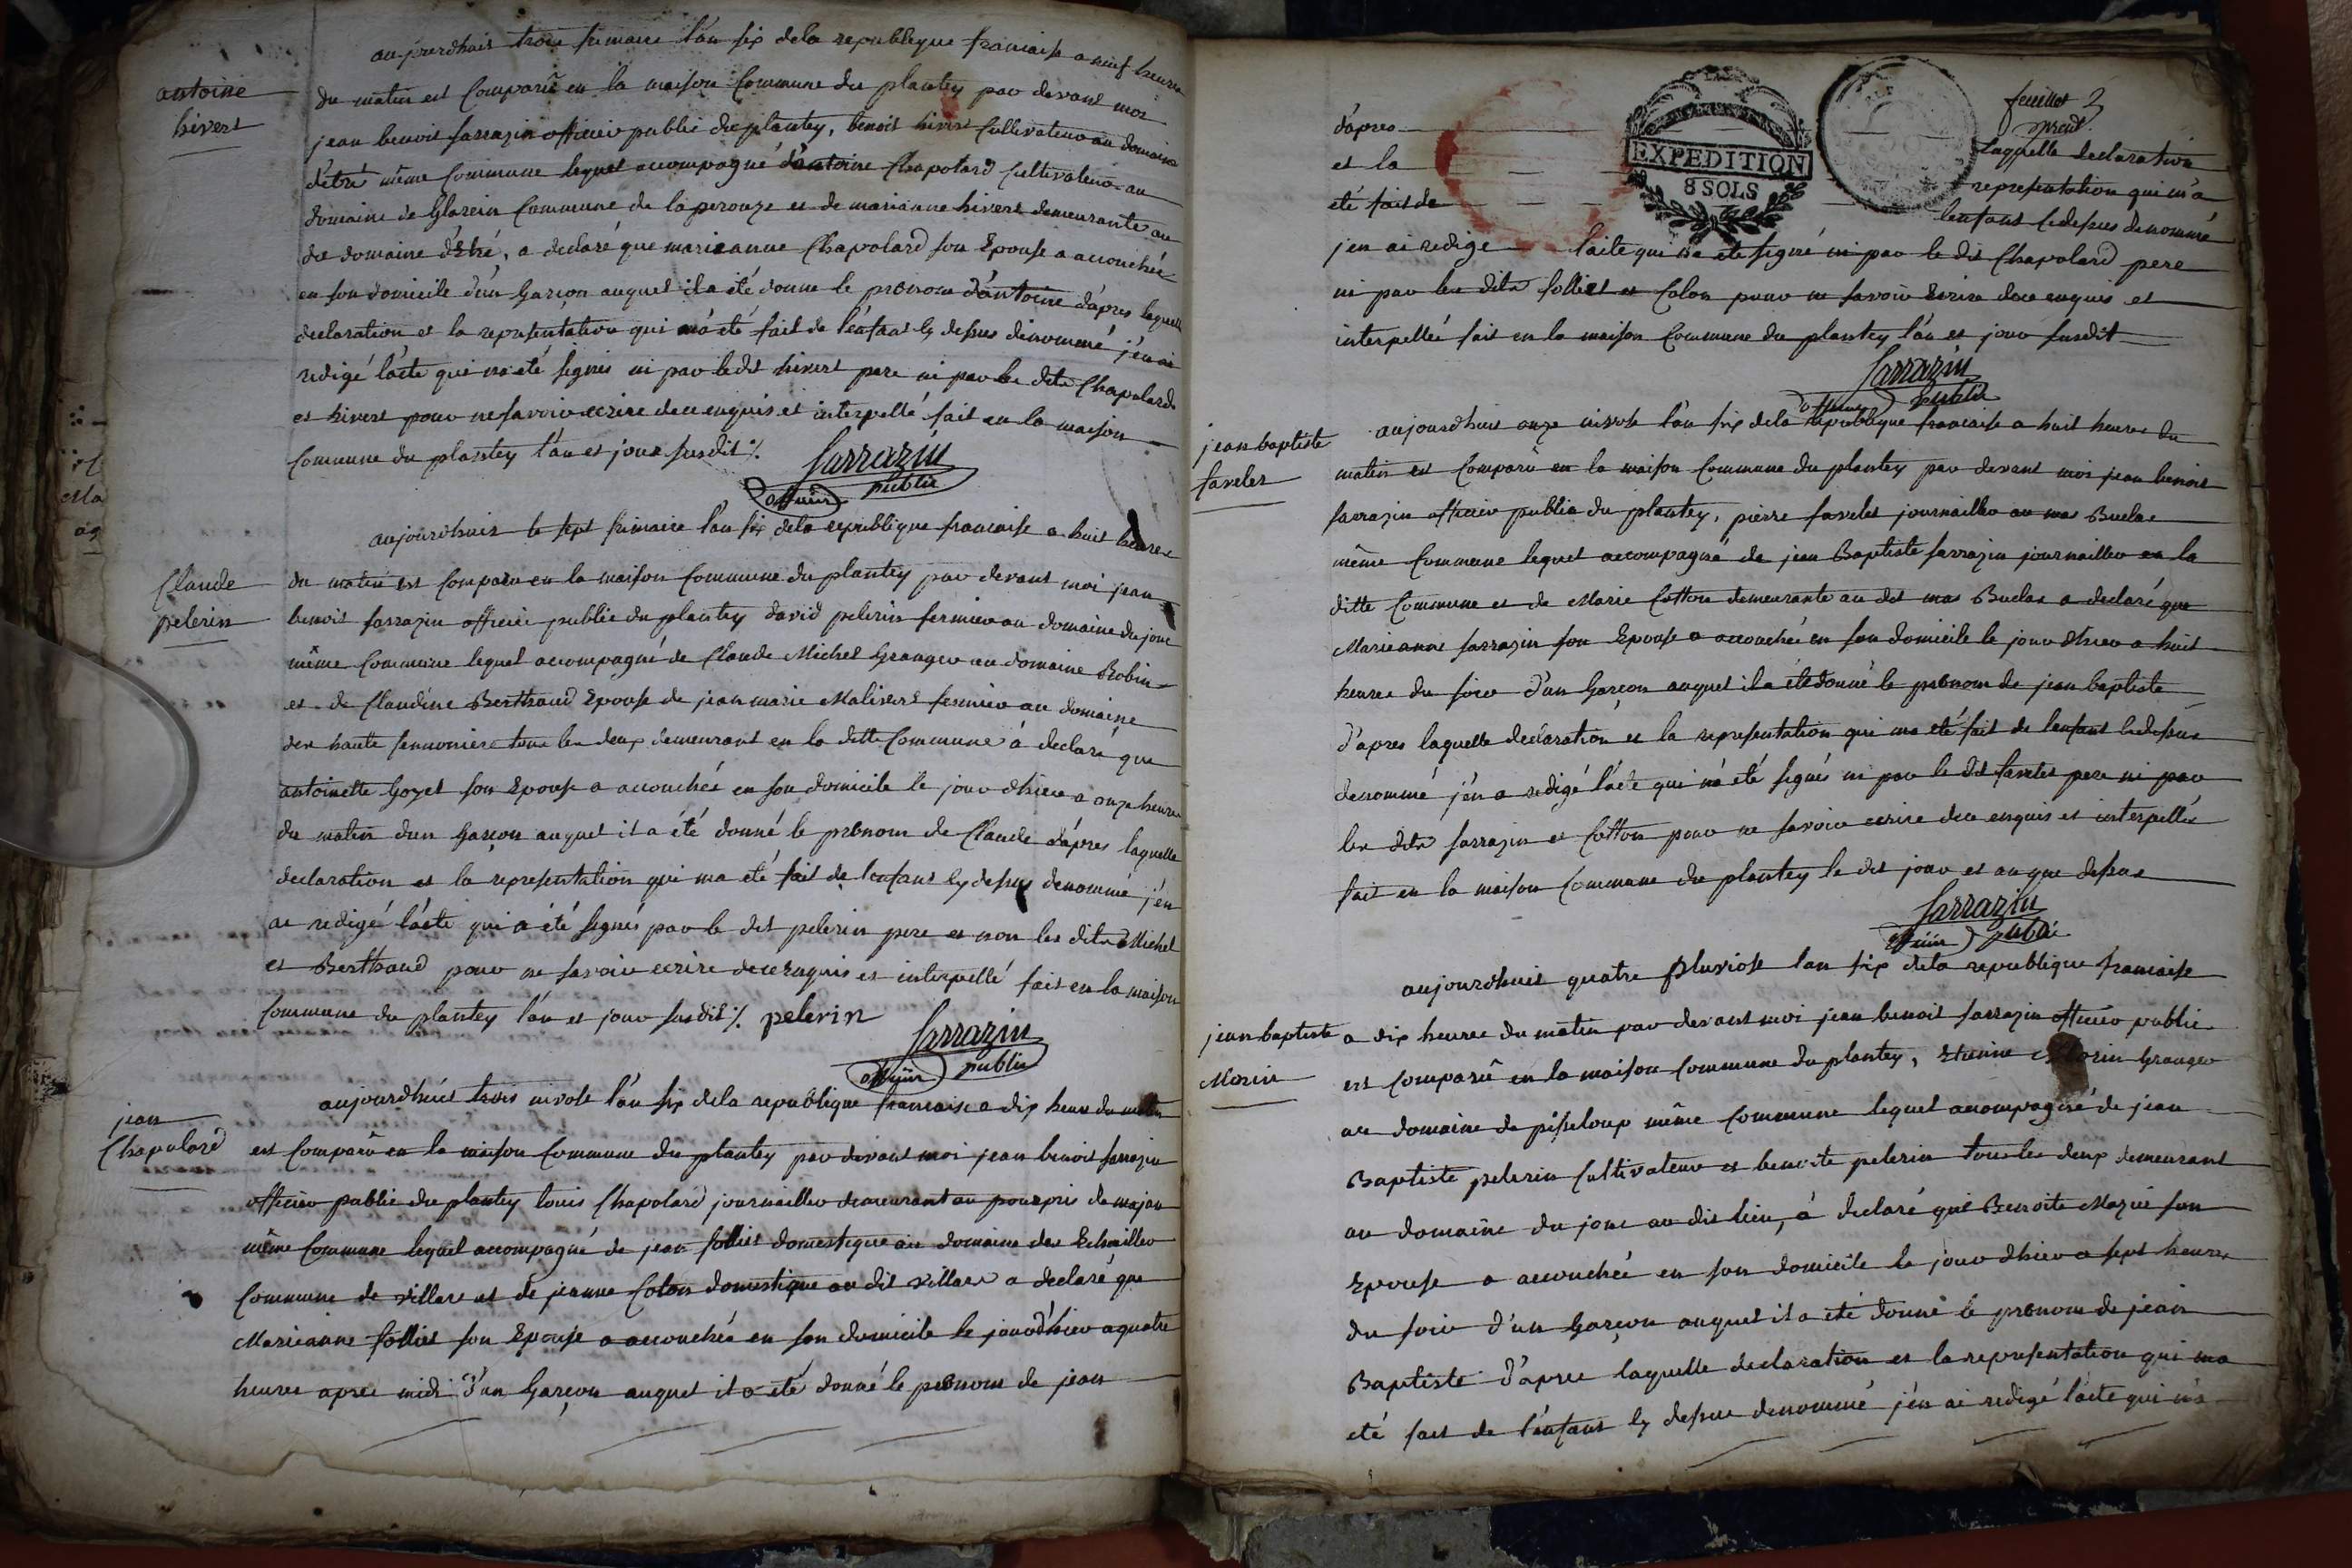 aujourdhuis trois frimaire l'an six dela republique francaise a neuf heures
antoine
hivert
du matin est Comparû en la maison Commune du plantey par devant moi
jean benoit sarrazin officier public du plantey, benoit hivert Cultivateur au domaine
d'êtré même Commune lequel accompagné d'antoine Chapolard Cultivateur au
domaine de Glarein Commune de la perouze et de marianne hivert demeurante au
du domaine d'êtré, a declaré que marieanne Chapolard son Epouse a accouchée
en son domicile d'un Garçon auquel il a été donne le prenom d'antoine d'apres laquelle
declaration et la representation qui má été fait de l'enfant cy dessus denommé j'en ai
redigé l'acte qui na été signés ni par ledit hivert pere ni par les dits Chapolard
et hivert pour ne savoir ecrire de ce enquis et interpellé fait en la maison
Commune du plantey l'an et jour susdit %.
Sarrazin
officier public
aujourdhuis le sept frimaire l'an six dela republique francaise a huit heures
Claude
pelerin
du matin est Comparu en la maison Commune du plantey par devant moi jean
benoit sarrazin officier public du plantey david pelerin fermier au domaine du jonc
même Commune lequel accompagné de Claude Michel Granger au domaine Robin
et de Claudine Berthaud Epouse de jean marie Malivert fermier au domaine
des haute tous les deux demeurant en la ditte Commune à declaré que
antoinette Goyet son Epouse a accouchée en son domicile le jour dhier a onze heures
du matin dun Garçon auquel il a été donné le prenom de Claude d'ápres laquelle
declaration et la representation qui ma eté fait de l'enfant cy dessus denommé j'en
ai redigé l'ácte qui a été signés par le dit pelerin pere et non les dits Michel
et Berthaud pour ne savoir ecrire de ce enquis et interpellé fait en la maison
Commune du plantey l'an et jour susdit %. pelerin
Sarrazin
officier public
aujourdhuis trois nivose l'an six dela republique francaise a dix heure du matin
jean
Chapolard
est Comparû en la maison Commune du plantey par devant moi jean benoit sarrazin
officier public du plantey louis Chapolard journaillier demeurant au pourpris de majan
même Commune lequel accompagné de jean folliet domestique au domaine des Echaillier
Commune de villars et de jeanne Colon domestique au dit villars a declaré que
Marieanne folliet son Epouse a accouchée en son domicile le jour d'hier a quatre
heures apres midi d'un Garçon auquel il a été donné le prenom de jean
feuillet 2
d'apres laquelle declaration
et la representation qui m'a
été fait de lenfant cidessus denommé
j'en ai redige lacte qui na eté signé ni par le dit Chapolard pere
ni par les dits folliet et Colon pour ne savoir Ecrire de ce enquis et
interpellée fait en la maison Commune du plantey l'an et jour susdit
EXPEDITION
8 SOLS
Sarrazin
officier public
jean baptiste
favelet
aujourdhuis onze nivose l'an six dela republique francaise a huit heures du
matin est Comparû en la maison Commune du plantey par devant moi jean benoit
sarrazin officier public du plantey, pierre favelet journaillier au mas Buclas
même Commune lequel accompagné de jean Baptiste sarrazin journaillier en la
ditte Commune et de Marie Cotton demeurante au dit mas Buclas a declaré que
Marieanne sarrazin son Epouse a accouchée en son domicile le jour dhier a huit
heures du soir d'un Garçon auquel il a été donné le prenom de jean baptiste
d'apres laquelle declaration et la representation qui ma eté fait de lenfant cidessus
denommé j'en a redigé l'ácte qui na été signés ni par le dit favelet pere ni par
les dits sarrazin et Cotton pour ne savoir ecrire de ce enquis et interpellés
fait en la maison Commune du plantey le dit jour et an que dessus
Sarrazin
officier public
aujourdhuis quatre pluviose l'an six dela republique francaise
jean baptiste
Morin
a dix heures du matin par devant moi jean benoit sarrazin officier public
est Comparû en la maison Commune du plantey, Etienne Morin Granger
au domaine de pisseloup même Commune lequel accompagné de jean
Baptiste pelerin Cultivateur et benoite pelerin tous les deux demeurant
au domaine du jonc au dit lieu, à declaré que Benoite Mazui son
Epouse a accouchée en son domicile le jour dhier a sept heures
du soir d'un Garçon auquel il a été donné le prenom de jean
Baptiste d'aprés laquelle declaration et la representation qui ma
eté fait de l'enfant cy dessus denommé j'en ai redigé l'ácte qui n'a